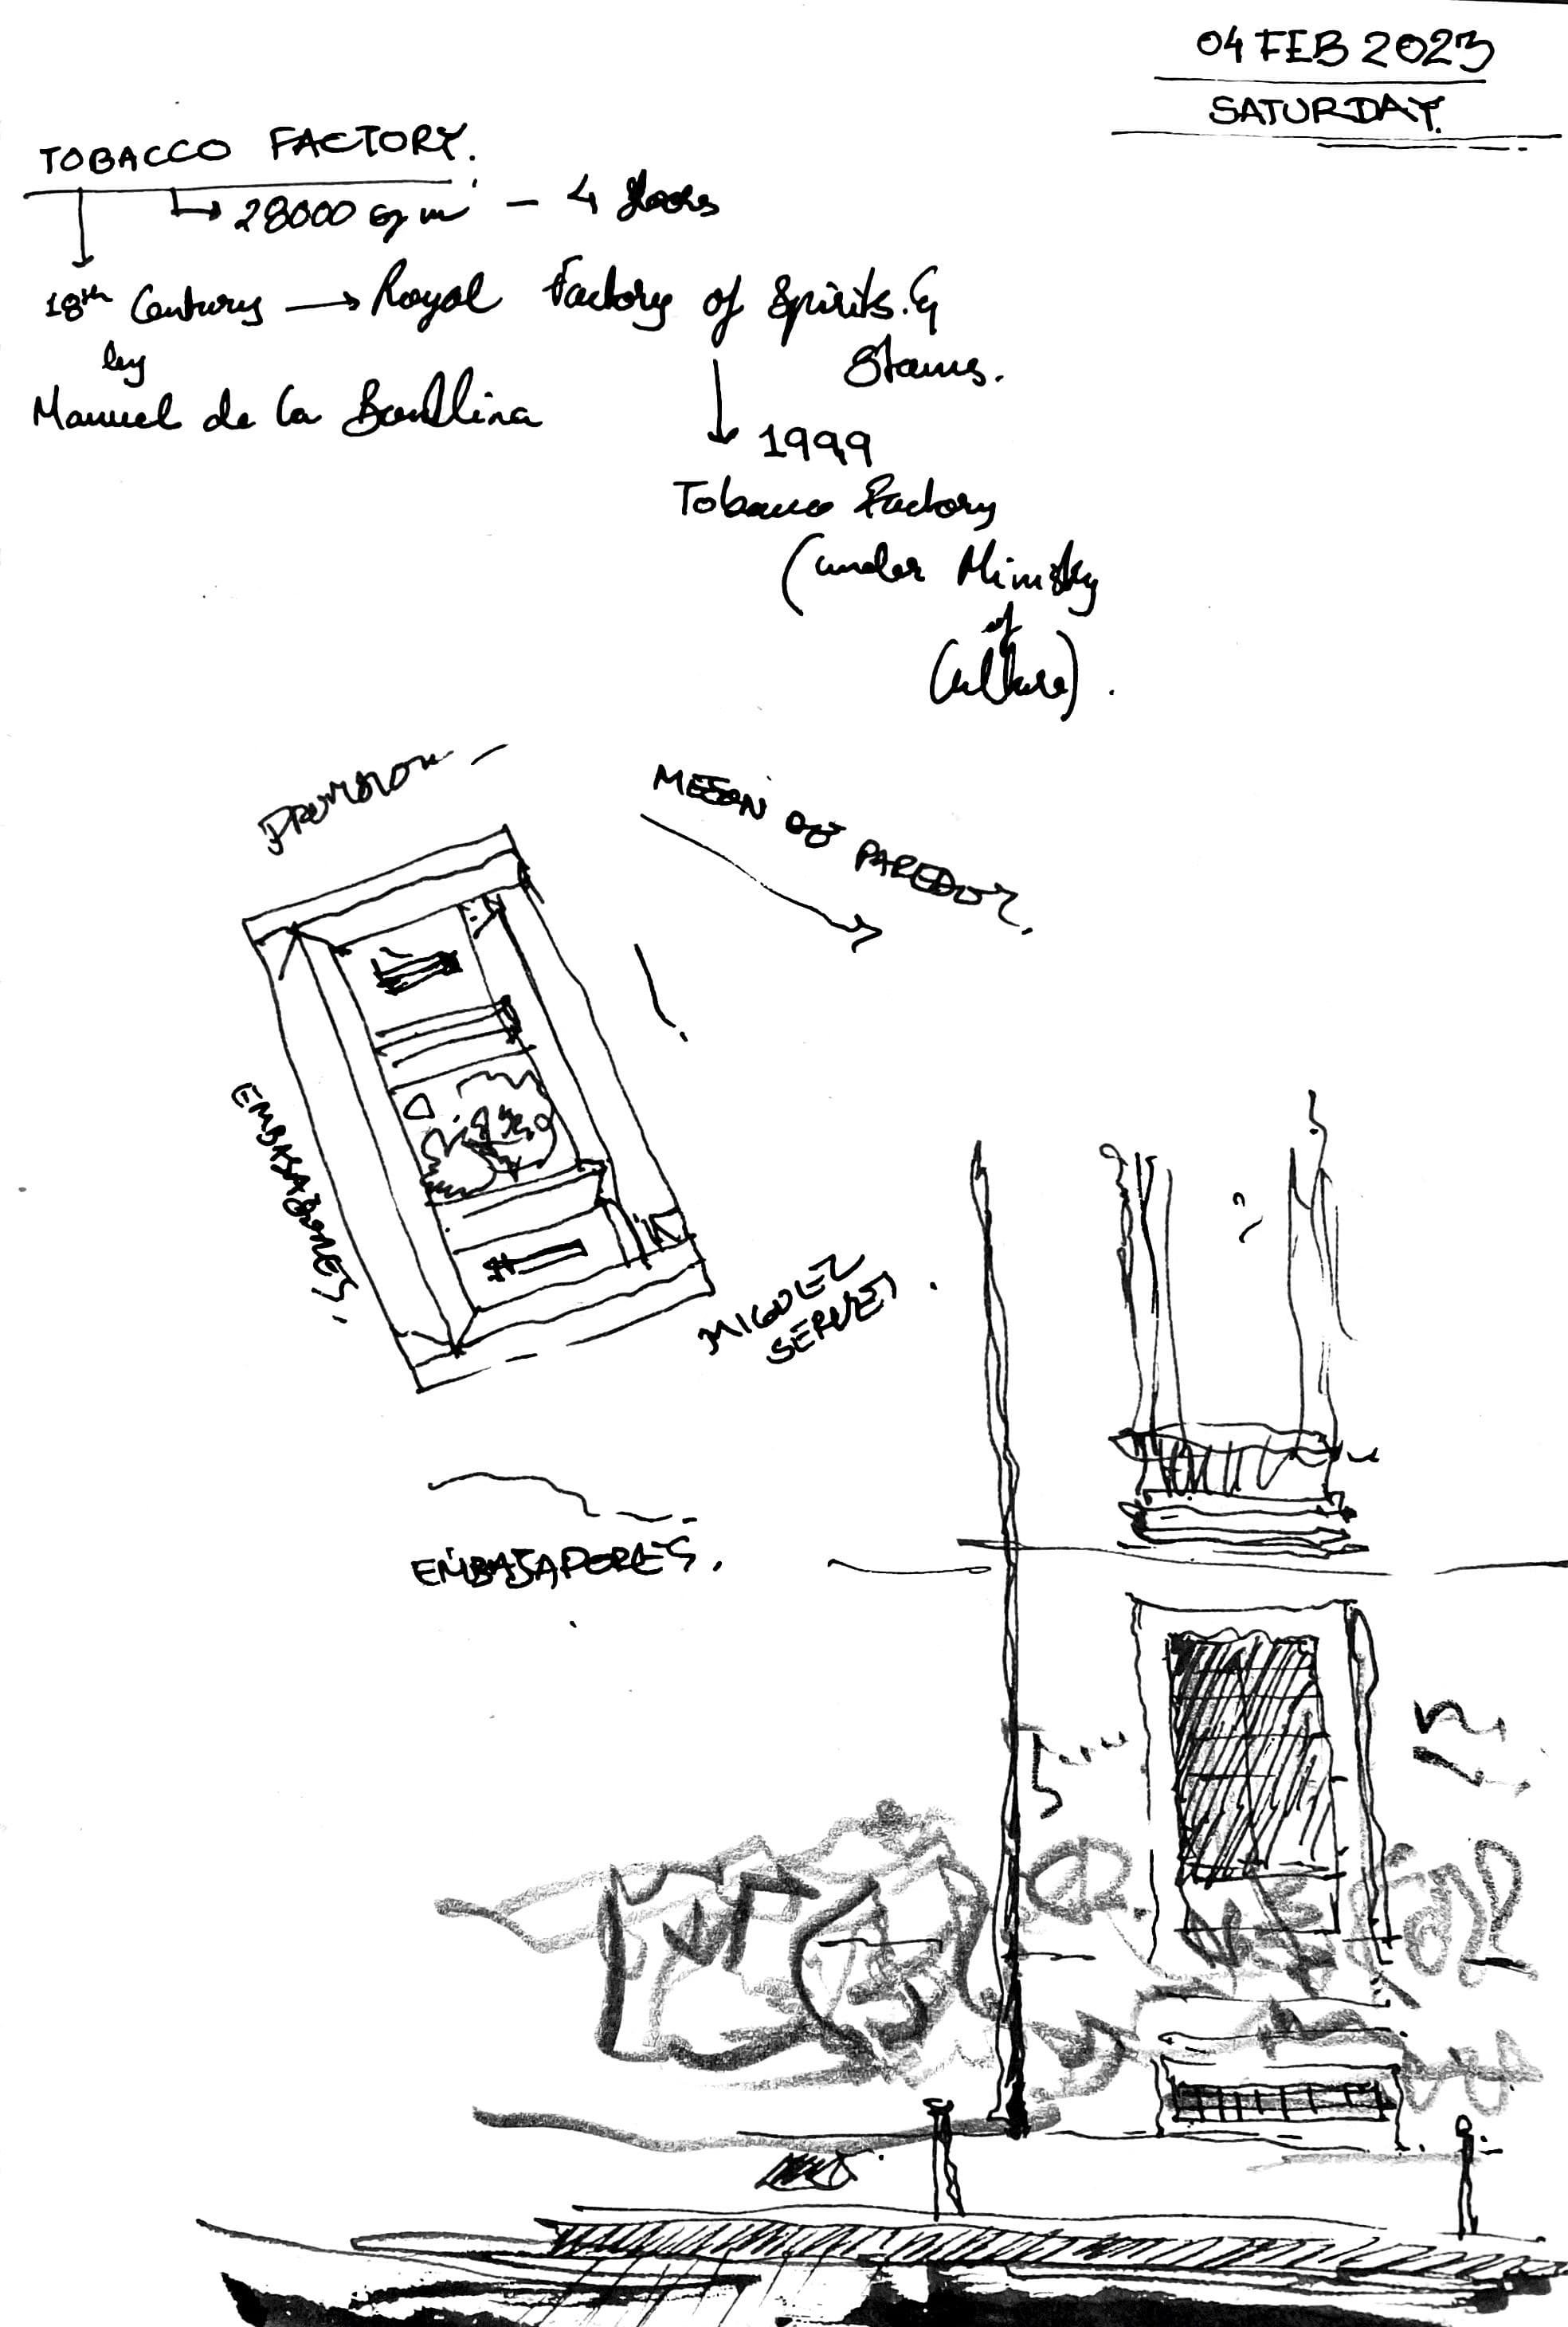 04 FEB 2023
SATURDAY.
TOBACCO FACTORY.
28000 sq m - 4 floors
18th Century → Royal Factory of Spirits &
by
Manuel de la
1999
Tobacco Factory
(under Ministry
of
Culture).
MESON DE PAREDOZ.
EMBAJADORES.
MIGUEL
SERVET
EMBAJADORES.